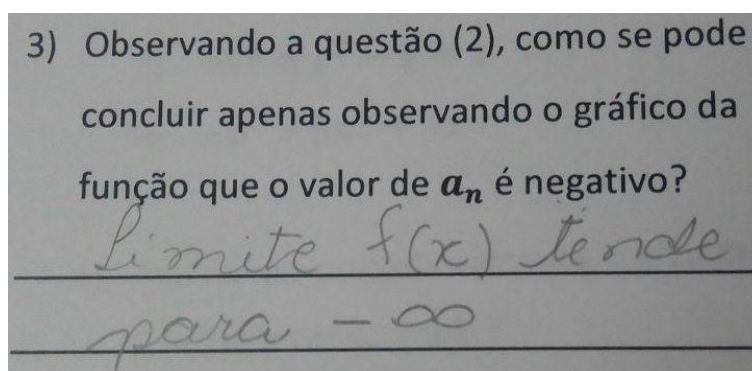 3) Observando a questão (2), como se pode
concluir apenas observando o gráfico da
função que o valor de aₙ é negativo?
Limite f(x) tende
para - ∞